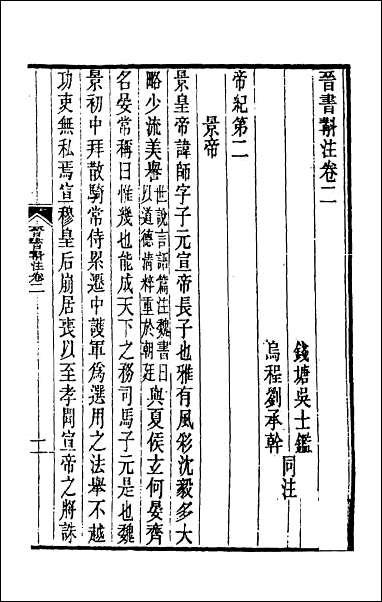 晉書斠注卷二
錢塘吳士鑑
烏程劉承幹
同注
帝紀第二
景帝
景皇帝諱師字子元宣帝長子也雅有風彩沈毅多大
略少流美譽世說言語篇注魏書曰以道德清粹重於朝廷與夏侯玄何晏齊
名晏常稱曰惟幾也能成天下之務司馬子元是也魏
景初中拜散騎常侍累遷中護軍為選用之法舉不越
功吏無私焉宣穆皇后崩居喪以至孝聞宣帝之將誅
晉書斠注卷二
一